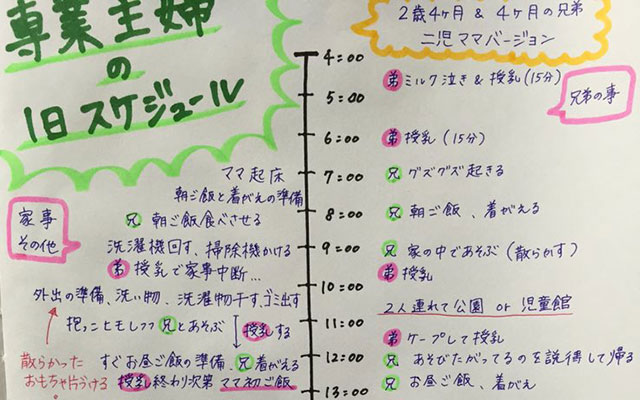 専業主婦
の
1日スケジュール
2歳4ヶ月 & 4ヶ月の兄弟
二児ママバージョン
家事
その他
兄弟の事
4:00
弟 ミルク泣き & 授乳(15分)
5:00
6:00
弟 授乳(15分)
ママ起床
7:00
兄 グズグズ起きる
朝ご飯と着がえの準備
兄 朝ご飯食べさせる
8:00
兄 朝ご飯、着がえる
洗濯機回す、掃除機かける
9:00
兄 家の中であそぶ(散らかす)
弟 授乳で家事中断…
弟 授乳
外出の準備、洗い物、洗濯物干す、ゴミ出す
10:00
2人連れて公園 or 児童館
抱っこひもしつつ兄とあそぶ
授乳する
11:00
弟 ケープして授乳
散らかった
おもちゃ片づける
すぐお昼ご飯の準備、兄着がえる
12:00
兄 あそびたがってるのを説得して帰る
授乳終わり次第 ママ初ご飯
13:00
兄 お昼ご飯、着がえ